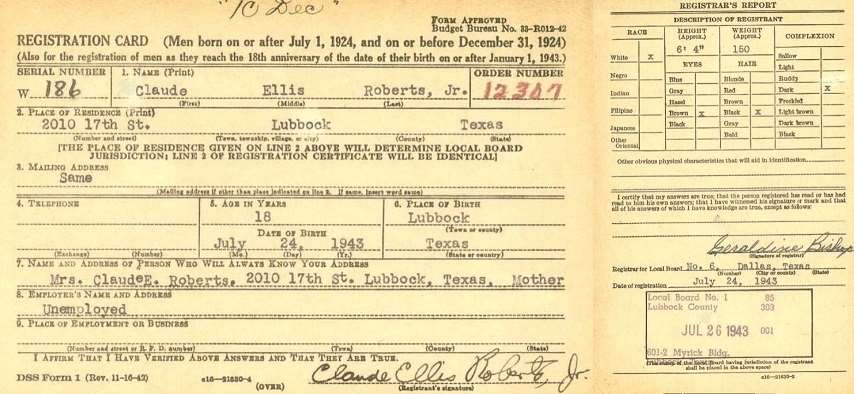 "10 Dec"
FORM APPROVED
Budget Bureau No. 33-R012-42
REGISTRATION CARD (Men born on or after July 1, 1924, and on or before December 31, 1924)
(Also for the registration of men as they reach the 18th anniversary of the date of their birth on or after January 1, 1943.)
SERIAL NUMBER 1. NAME (Print) ORDER NUMBER
W 186 Claude Ellis Roberts, Jr. 12307
(First) (Middle) (Last)
2. PLACE OF RESIDENCE (Print)
2010 17th St. Lubbock Texas
(Number and street) (Town, township, village, or city) (County) (State)
[THE PLACE OF RESIDENCE GIVEN ON LINE 2 ABOVE WILL DETERMINE LOCAL BOARD
JURISDICTION; LINE 2 OF REGISTRATION CERTIFICATE WILL BE IDENTICAL]
3. MAILING ADDRESS
Same
(Mailing address if other than place indicated on line 2. If same, insert word same)
4. TELEPHONE 5. AGE IN YEARS 6. PLACE OF BIRTH
18 Lubbock
DATE OF BIRTH (Town or county)
July 24, 1943 Texas
(Exchange) (Number) (Mo.) (Day) (Yr.) (State or country)
7. NAME AND ADDRESS OF PERSON WHO WILL ALWAYS KNOW YOUR ADDRESS
Mrs. ClaudeE. Roberts, 2010 17th St. Lubbock, Texas, Mother
8. EMPLOYER'S NAME AND ADDRESS
Unemployed
9. PLACE OF EMPLOYMENT OR BUSINESS
(Number and street or R. F. D. number) (Town) (County) (State)
I AFFIRM THAT I HAVE VERIFIED ABOVE ANSWERS AND THAT THEY ARE TRUE.
DSS Form 1 (Rev. 11-16-42) (OVER) Claude Ellis Roberts, Jr.
(Registrant's signature)
REGISTRAR'S REPORT
DESCRIPTION OF REGISTRANT
RACE HEIGHT (Approx.) WEIGHT (Approx.) COMPLEXION
6' 4" 150
White X EYES HAIR Sallow
Light
Negro Blue Blonde Ruddy
Indian Gray Red Dark X
Hazel Brown Freckled
Filipino Brown X Black X Light brown
Japanese Black Gray Dark brown
Other Oriental Bald Black
Other obvious physical characteristics that will aid in identification
I certify that my answers are true; that the person registered has read or has had
read to him his own answers; that I have witnessed his signature or mark and that
all of his answers of which I have knowledge are true, except as follows:
Geraldine Bishop
(Signature of registrar)
Registrar for Local Board No. 6, Dallas, Texas
(Number) (City or county) (State)
Date of registration July 24, 1943
Local Board No. 1 85
Lubbock County 303
JUL 26 1943 001
601-2 Myrick Bldg.
(The stamp of the Local Board having jurisdiction of the registrant
shall be placed in the above space)